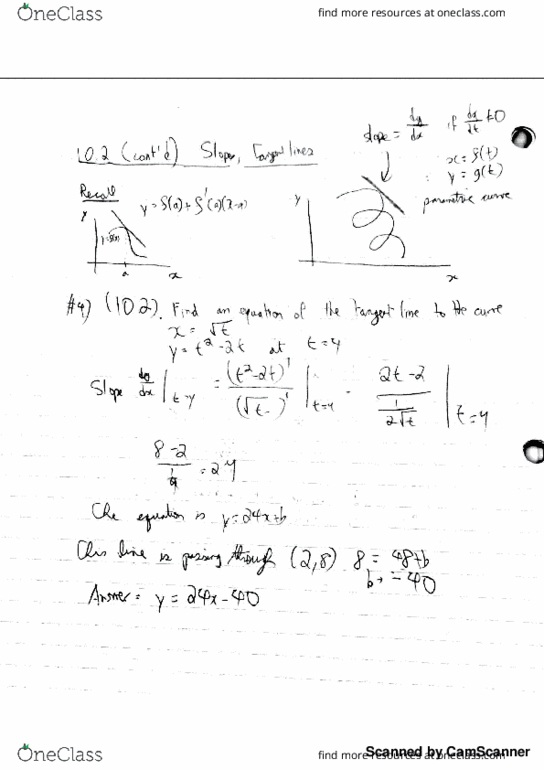 OneClass
find more resources at oneclass.com
slope = dy/dx if dx/dt ≠0
10.2 (cont'd) Slope, Tangent lines
x = f(t)
y = g(t)
parametric curve
Recall
y = f(a) + f'(a)(x-a)
y
y=f(x)
a
x
y
x
#4) (10.2). Find an equation of the tangent line to the curve
x = √t
y = t² -2t at t=4
Slope dy/dx |t=4 = (t²-2t)' / (√t)' |t=4 = 2t-2 / 1/2√t | t=4
8-2 / 1/4 = 24
The equation is y=24x+b
This line is passing through (2,8) 8 = 48+b
b = -40
Answer: y = 24x-40
OneClass
find more resources at oneclass.com
Scanned by CamScanner